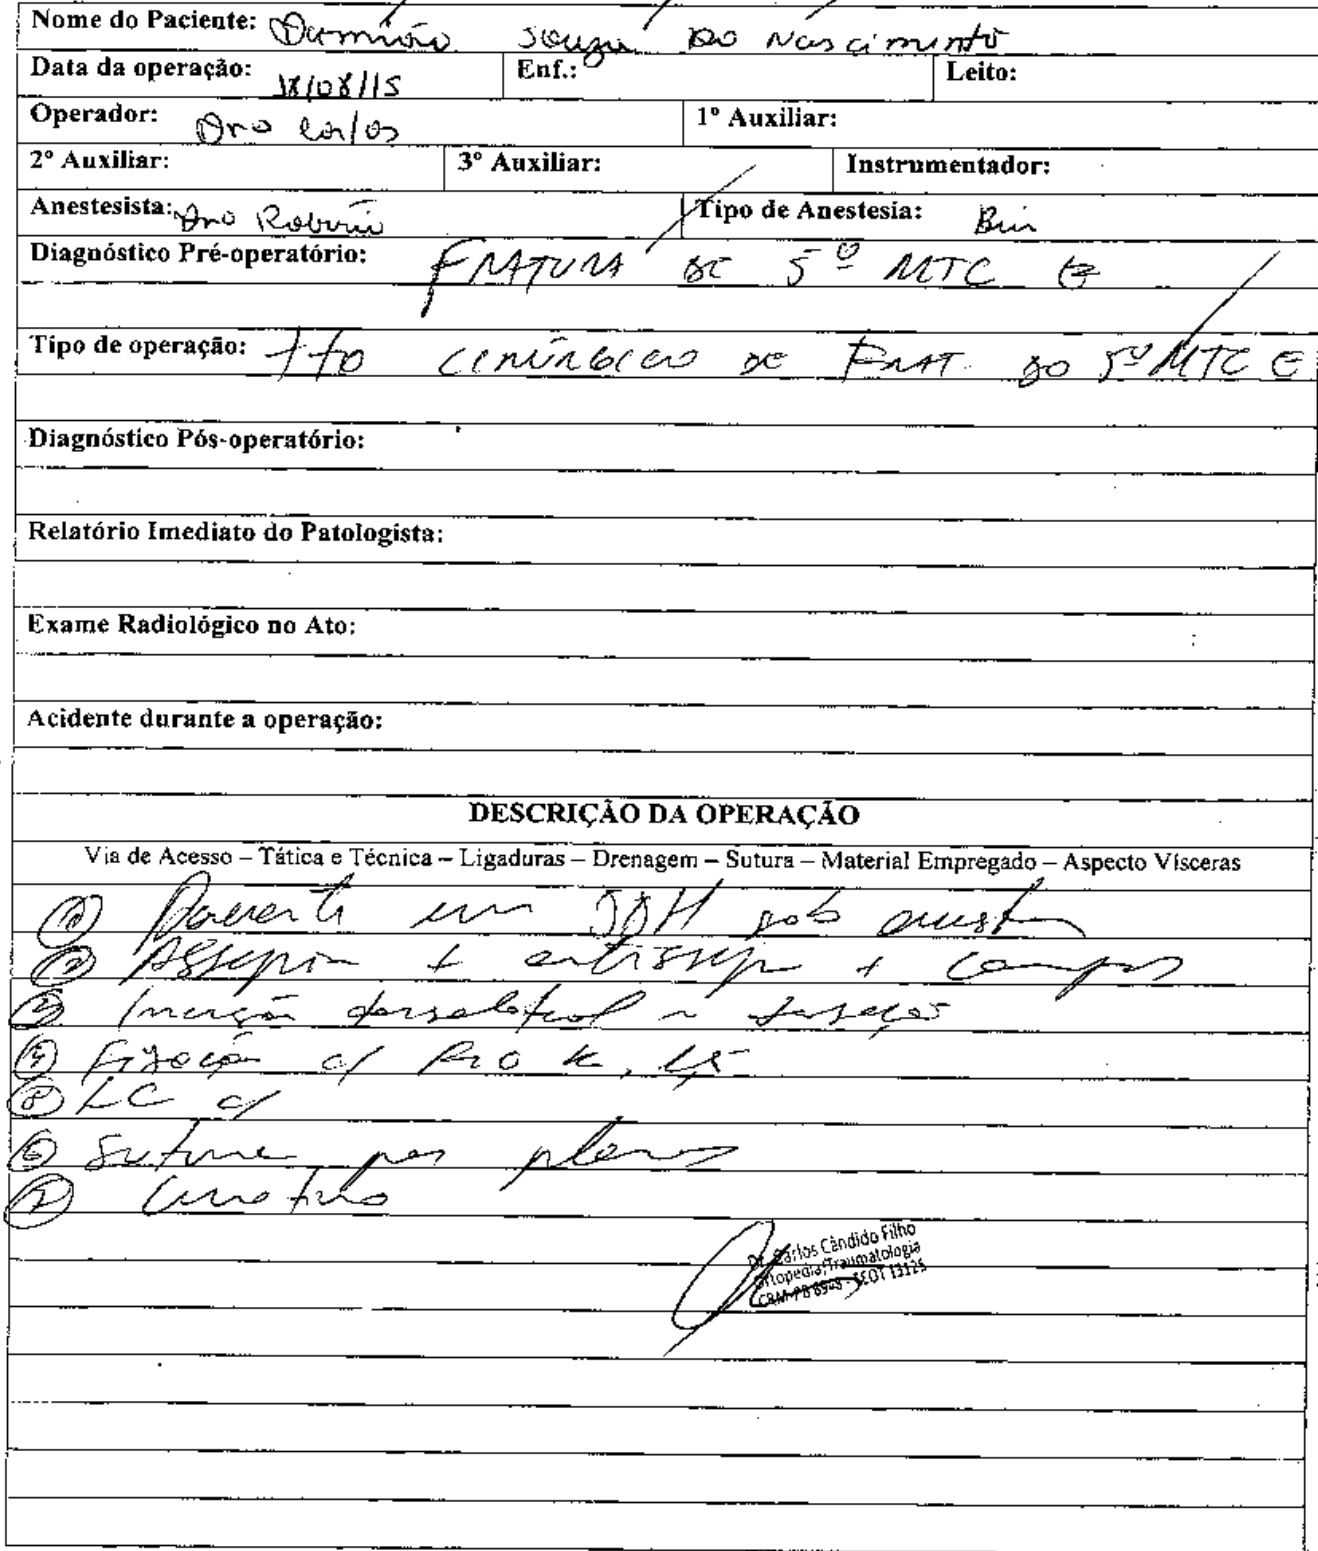 Nome do Paciente: Damião Souza Do Nascimento
Data da operação: 18/08/15 Enf.: Leito:
Operador: Dro Carlos 1º Auxiliar:
2º Auxiliar: 3º Auxiliar: Instrumentador:
Anestesista: Dro Tipo de Anestesia:
Diagnóstico Pré-operatório: FRATURA DE 5º MTC E
Tipo de operação: tto CIRÚRGICO DE FRAT. DO 5º MTC E
Diagnóstico Pós-operatório:
Relatório Imediato do Patologista:
Exame Radiológico no Ato:
Acidente durante a operação:
DESCRIÇÃO DA OPERAÇÃO
Via de Acesso – Tática e Técnica – Ligaduras – Drenagem – Sutura – Material Empregado – Aspecto Vísceras
① Paciente em DDH sob
② Assepsia + antissepsia + campos
③ Incisão dorsolateral
④ Fixação c/ Fio K, 1,5
⑤ LC c/
⑥ Sutura por planos
⑦ Curativo
Dr. Carlos Cândido Filho
Ortopedia/Traumatologia
CRM-PB - TEOT 13125